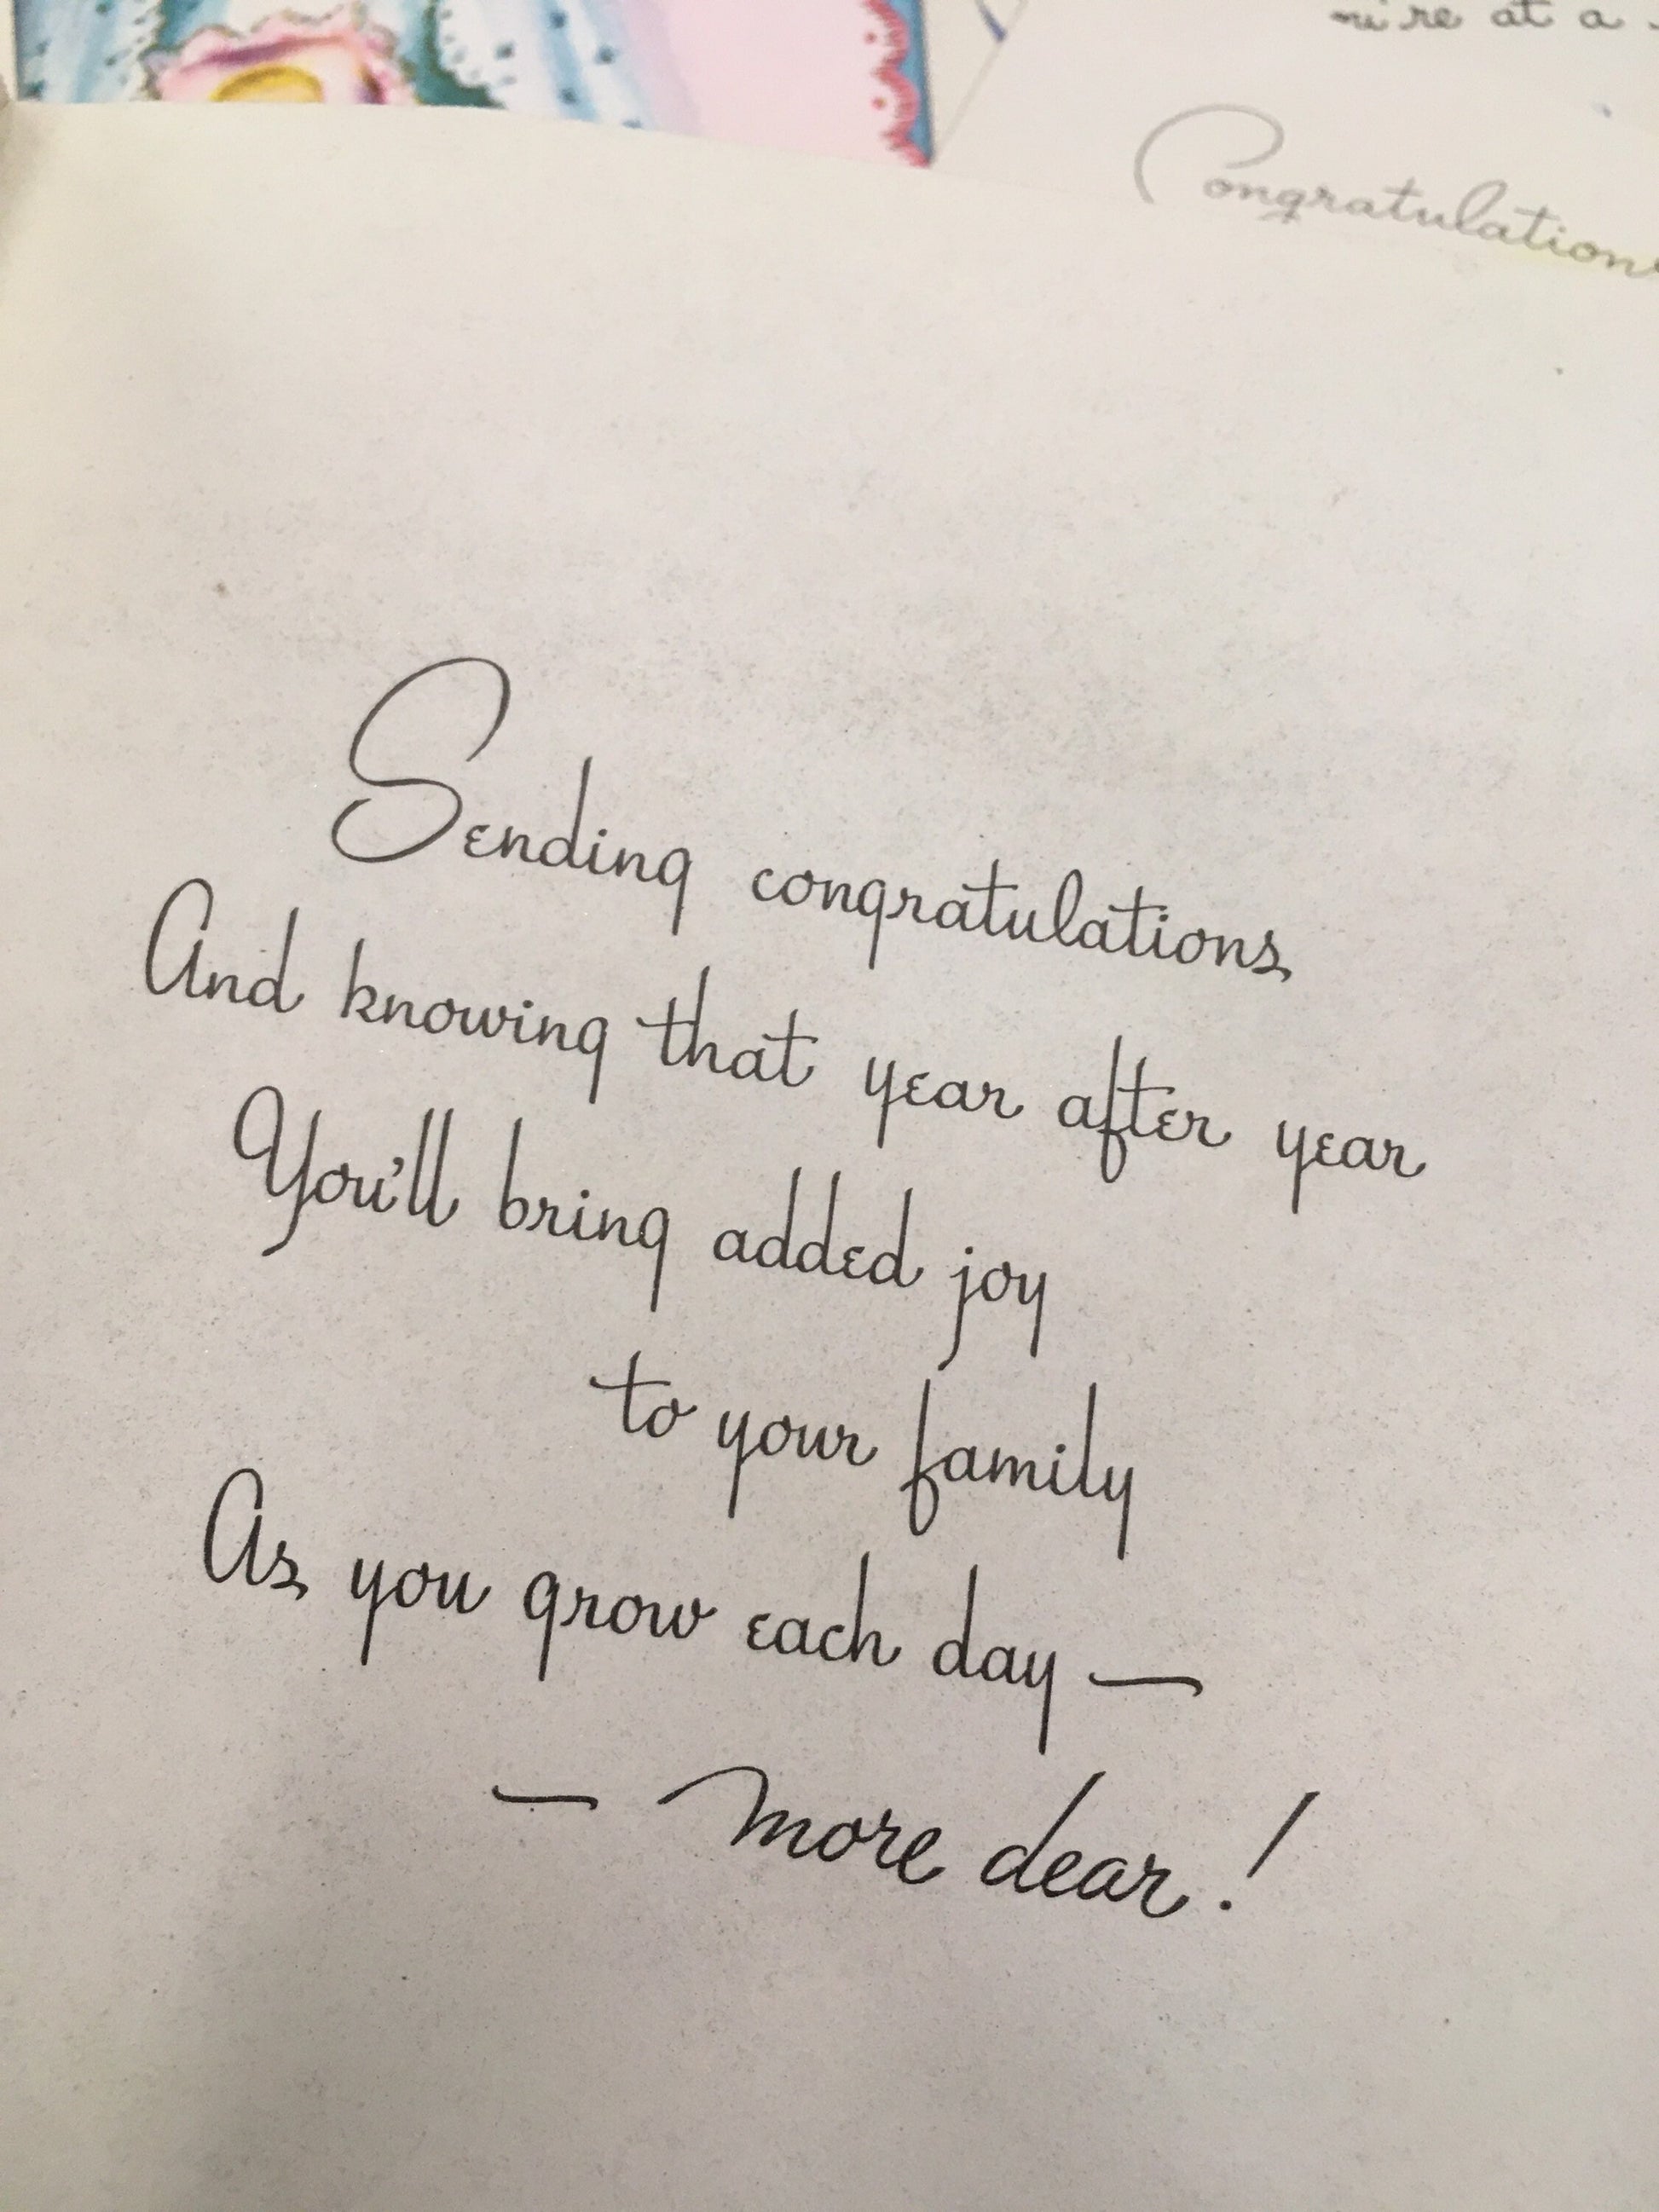 at a
Congratulations
Sending congratulations
And knowing that year after year
You'll bring added joy
to your family
As you grow each day —
— more dear!